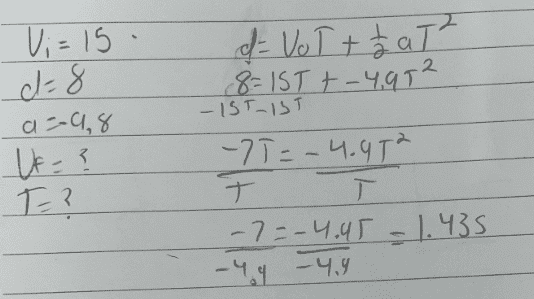 Vi = 15
d = 8
a = -9,8
VF = ?
T = ?
d = VoT + 1/2 aT²
8 = 15T + -4.9T²
-15T -15T
-7T = -4.9T²
T T
-7 = -4.9T = 1.43s
-4.9 -4.9